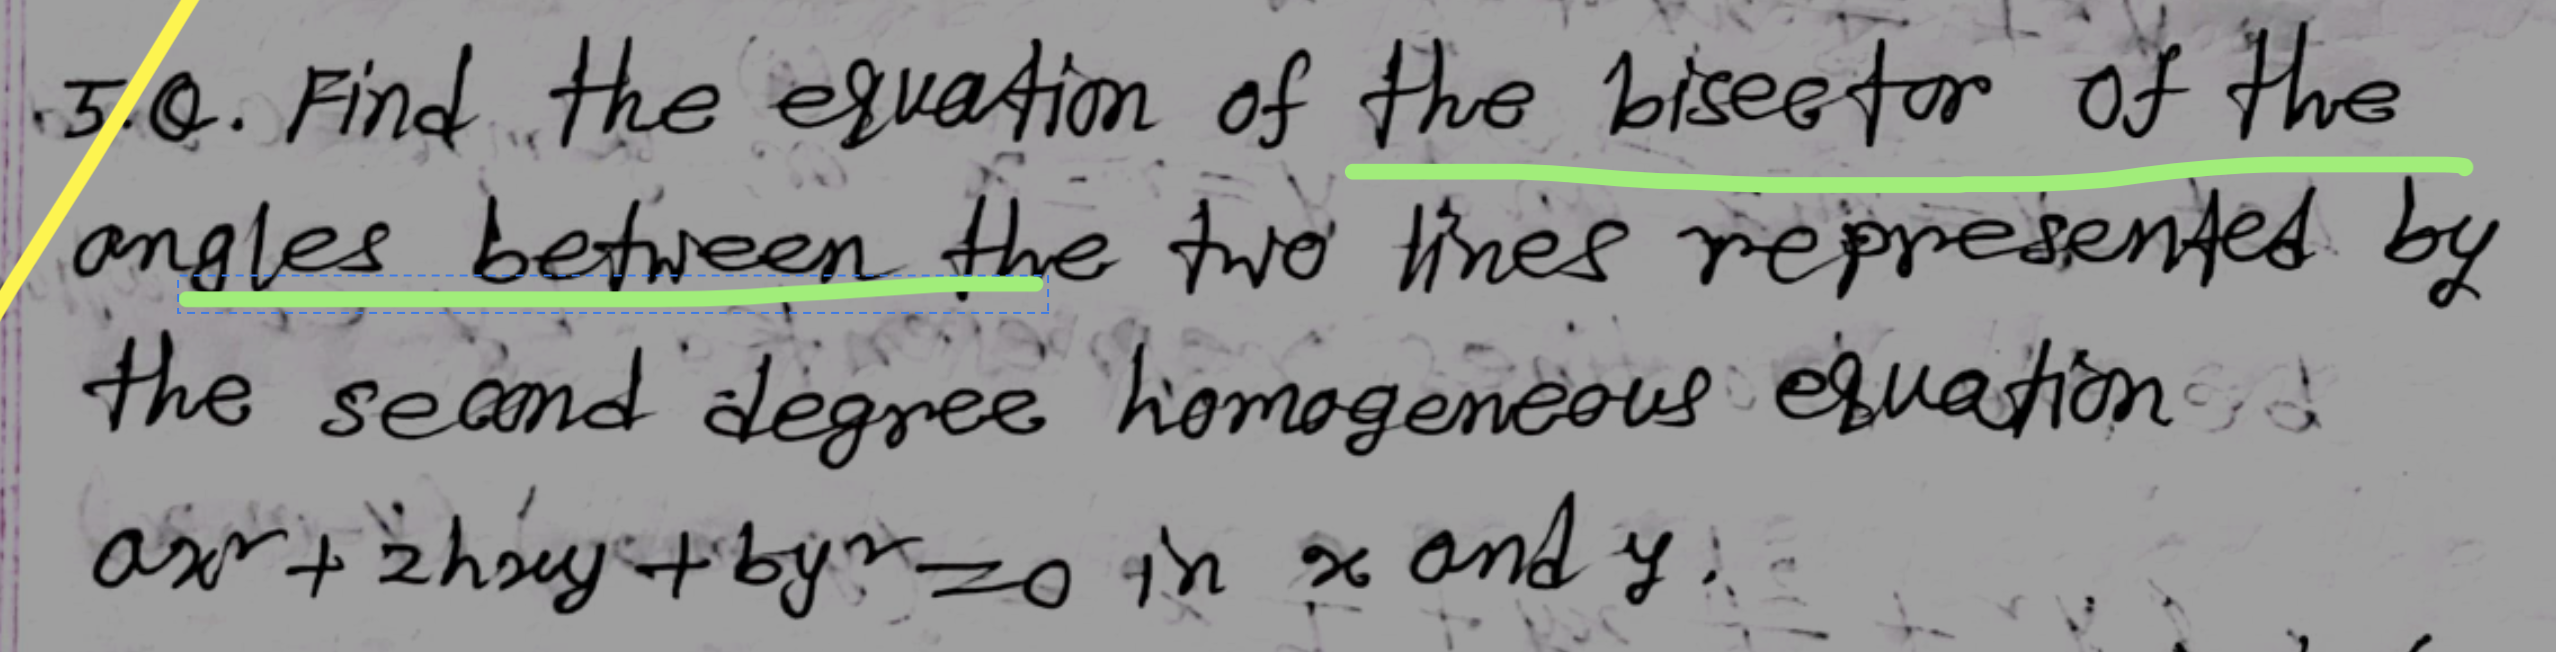 5.Q. Find the equation of the bisector of the
angles between the two lines represented by
the second degree homogeneous equation
ax² + 2hxy + by² = 0 in x and y.